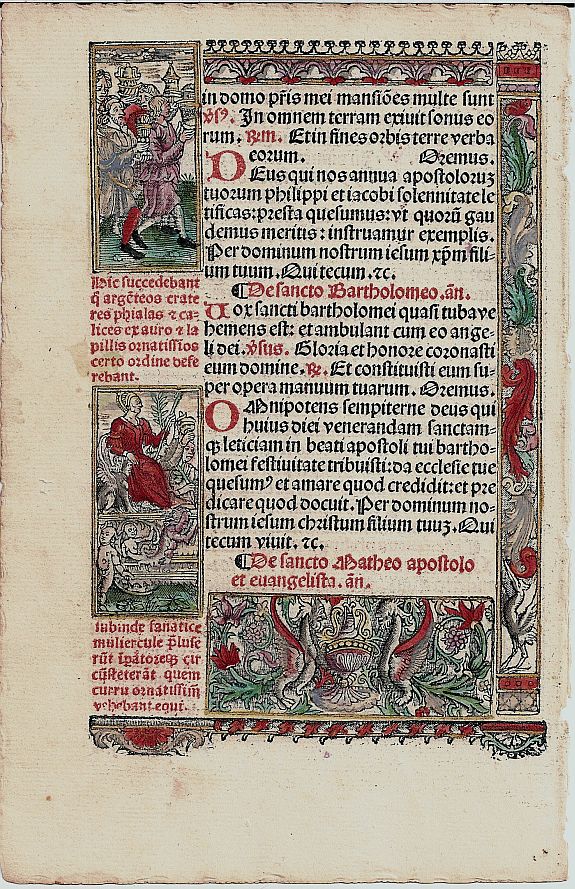 in domo pr̃is mei mansiões multe sunt
v̓sꝰ. In omnem terram exiuit sonus eo
rum. ℞m. Et in fines orbis terre verba
eorum. Oremus.
DEus qui nos annua apostoloruꝫ
tuorum philippi et iacobi solennitate le
tificas: presta quesumus: vt quorũ gau
demus meritis: instruamur exemplis.
Per dominum nostrum iesum xp̃m fili-
um tuum. Qui tecum. ⁊c.
¶ De sancto Bartholomeo. añ.
Uox sancti bartholomei quasi tuba ve
hemens est: et ambulant cum eo ange-
li dei. v̓sus. Gloria et honore coronasti
eum domine. ℞. Et constituisti eum su-
per opera manuum tuarum. Oremus.
OMnipotens sempiterne deus qui
huius diei venerandam sanctam-
qꝫ leticiam in beati apostoli tui bartho-
lomei festiuitate tribuisti: da ecclesie tue
quesumꝰ et amare quod credidit: et pre
dicare quod docuit. Per dominum no-
strum iesum christum filium tuuꝫ. Qui
tecum viuit. ⁊c.
¶ De sancto Matheo apostolo
et euangelista. añ.
Hic succedebant
q̃ argẽteos crate
res phialas ⁊ ca-
lices ex auro ⁊ la
pillis ornatissĩos
certo ordine defe
rebant.
Iubinde fanatice
muliercule p̃luse
rũt ip̃atoreqꝫ cir
cũsteterãt quem
curru ornatissim̃
vehebant equi.